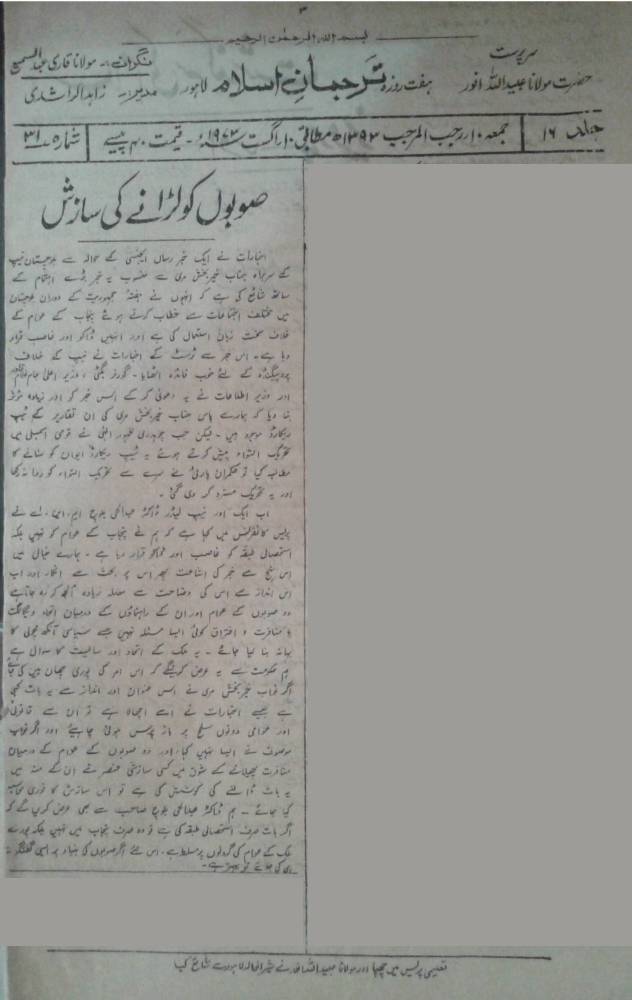 ۳
بسم اللہ الرحمٰن الرحیم
سرپرست
حضرت مولانا عبیداللہ انور
ہفت روزہ ترجمانِ اسلام لاہور
نگران :- مولانا قاری عبدالسمیع
مدیر :- زاہد الراشدی
جلد ۱۶
جمعہ ۱۰ رجب المرجب ۱۳۹۳ھ مطابق ۱۰ اگست ۱۹۷۳ء - قیمت ۴۰ پیسے
شمارہ ۳۱
صوبوں کو لڑانے کی سازش
اخبارات نے ایک خبر رساں ایجنسی کے حوالہ سے بلوچستان نیپ
کے سربراہ جناب خیر بخش مری سے منسوب یہ خبر بڑے اہتمام کے
ساتھ شائع کی ہے کہ انہوں نے ہفتۂ جمہوریت کے دوران بلوچستان
میں مختلف اجتماعات سے خطاب کرتے ہوئے پنجاب کے عوام کے
خلاف سخت زبان استعمال کی ہے اور انہیں ڈاکو اور غاصب قرار
دیا ہے۔ اس خبر سے ٹرسٹ کے اخبارات نے نیپ کے خلاف
پروپیگنڈہ کے لئے خوب فائدہ اٹھایا۔ گورنر بگٹی، وزیر اعلیٰ جام
اور وزیر اطلاعات نے یہ دعویٰ کر کے اس خبر کو اور زیادہ مؤثر
بنا دیا کہ ہمارے پاس جناب خیر بخش مری کی ان تقاریر کے ٹیپ
ریکارڈ موجود ہیں۔ لیکن جب چوہدری ظہور الٰہی نے قومی اسمبلی میں
تحریک التواء پیش کرتے ہوئے یہ ٹیپ ریکارڈ ایوان کو سنانے کا
مطالبہ کیا تو حکمران پارٹی نے سرے سے تحریک التواء کو روا نہ رکھا
اور یہ تحریک مسترد کر دی گئی۔
اب ایک اور نیپ لیڈر ڈاکٹر عبدالحی بلوچ ایم۔این۔اے نے
پریس کانفرنس میں کہا ہے کہ ہم نے پنجاب کے عوام کو نہیں بلکہ
استحصالی طبقہ کو غاصب اور ڈاکو قرار دیا ہے۔ ہمارے خیال میں
اس نہج سے خبر کی اشاعت پھر اس پر بحث سے انکار اور اب
اس انداز سے اس کی وضاحت سے معاملہ زیادہ الجھ کر رہ جاتا ہے
دو صوبوں کے عوام اور ان کے راہنماؤں کے درمیان اتحاد و یگانگت
یا منافرت و افتراق کوئی ایسا مسئلہ نہیں جسے سیاسی آنکھ مچولی کا
بہانہ بنا لیا جائے۔ یہ ملک کے اتحاد اور سالمیت کا سوال ہے
ہم حکومت سے یہ عرض کرینگے کہ اس امر کی پوری چھان بین کی جائے
اگر نواب خیر بخش مری نے اس عنوان اور انداز سے یہ بات کہی
ہے جیسے اخبارات نے اسے اچھالا ہے تو ان سے قانونی
اور عوامی دونوں سطح پر باز پرس ہونی چاہیئے اور اگر نواب
موصوف نے ایسا نہیں کہا، اور دو صوبوں کے عوام کے درمیان
منافرت پھیلانے کے شوق میں کسی سازشی عنصر نے ان کے منہ میں
یہ بات ڈالنے کی کوشش کی ہے تو اس سازش کا فوری محاسبہ
کیا جائے۔ ہم ڈاکٹر عبدالحی بلوچ صاحب سے بھی عرض کریں گے کہ
اگر بات صرف استحصالی طبقہ کی ہے تو وہ صرف پنجاب میں نہیں بلکہ پورے
ملک کے عوام کی گردنوں پر مسلط ہے۔ اس لئے اگر صوبوں کی بنیاد پر ایسی گفتگو نہ
ہی کی جائے تو بہتر ہے۔
تعلیمی پریس میں چھپا اور مولانا عبیداللہ انور نے شیرانوالہ لاہور سے شائع کیا